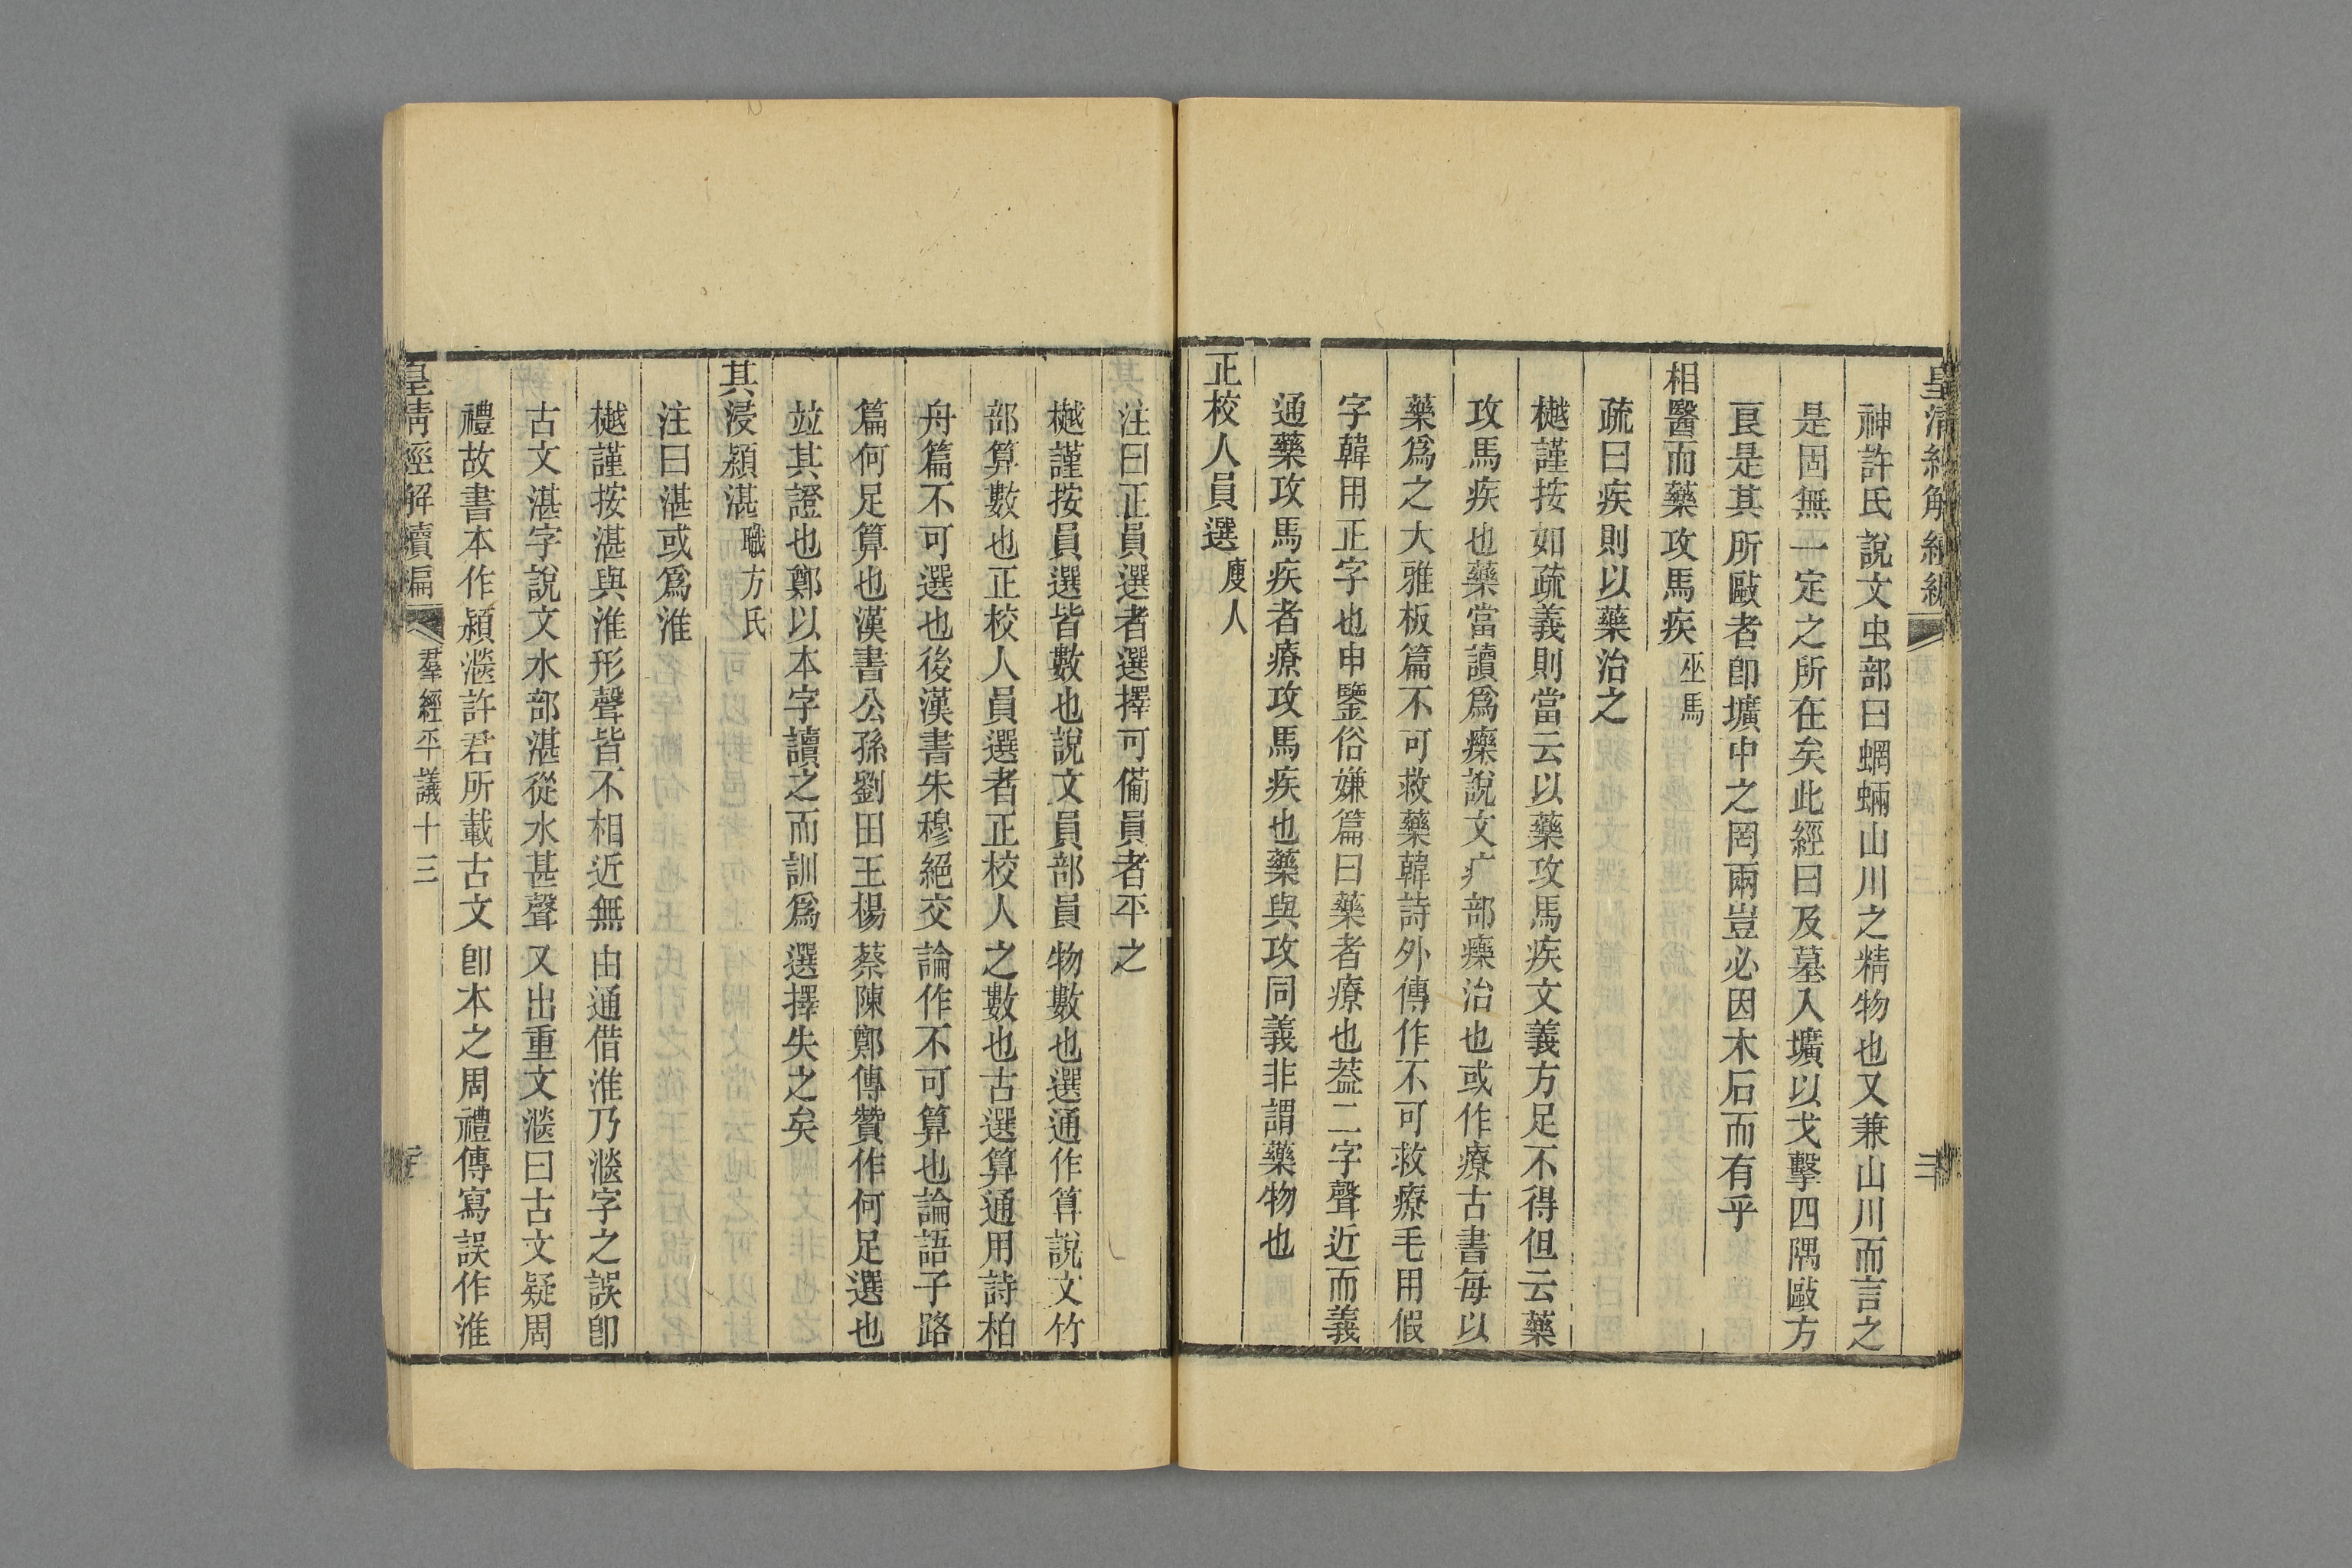 皇清經解續編
神許氏說文虫部曰蝄蜽山川之精物也又兼山川而言之
是固無一定之所在矣此經曰及墓入壙以戈擊四隅敺方
良是其所敺者卽壙中之罔兩豈必因木石而有乎
相醫而藥攻馬疾巫馬
疏曰疾則以藥治之
樾謹按如疏義則當云以藥攻馬疾文義方足不得但云藥
攻馬疾也藥當讀爲𤻲說文疒部𤻲治也或作療古書每以
藥爲之大雅板篇不可救藥韓詩外傳作不可救療毛用假
字韓用正字也申鑒俗嫌篇曰藥者療也葢二字聲近而義
通藥攻馬疾者療攻馬疾也藥與攻同義非謂藥物也
正校人員選廋人
注曰正員選者選擇可備員者平之
樾謹按員選皆數也說文員部員物數也選通作算說文竹
部算數也正校人員選者正校人之數也古選算通用詩柏
舟篇不可選也後漢書朱穆絕交論作不可算也論語子路
篇何足算也漢書公孫劉田王楊蔡陳鄭傳贊作何足選也
竝其證也鄭以本字讀之而訓爲選擇失之矣
其浸潁湛職方氏
注曰湛或爲淮
樾謹按湛與淮形聲皆不相近無由通借淮乃㴴字之誤卽
古文湛字說文水部湛從水甚聲又出重文㴴曰古文疑周
禮故書本作潁㴴許君所載古文卽本之周禮傳寫誤作淮
皇清經解續編
羣經平議十三